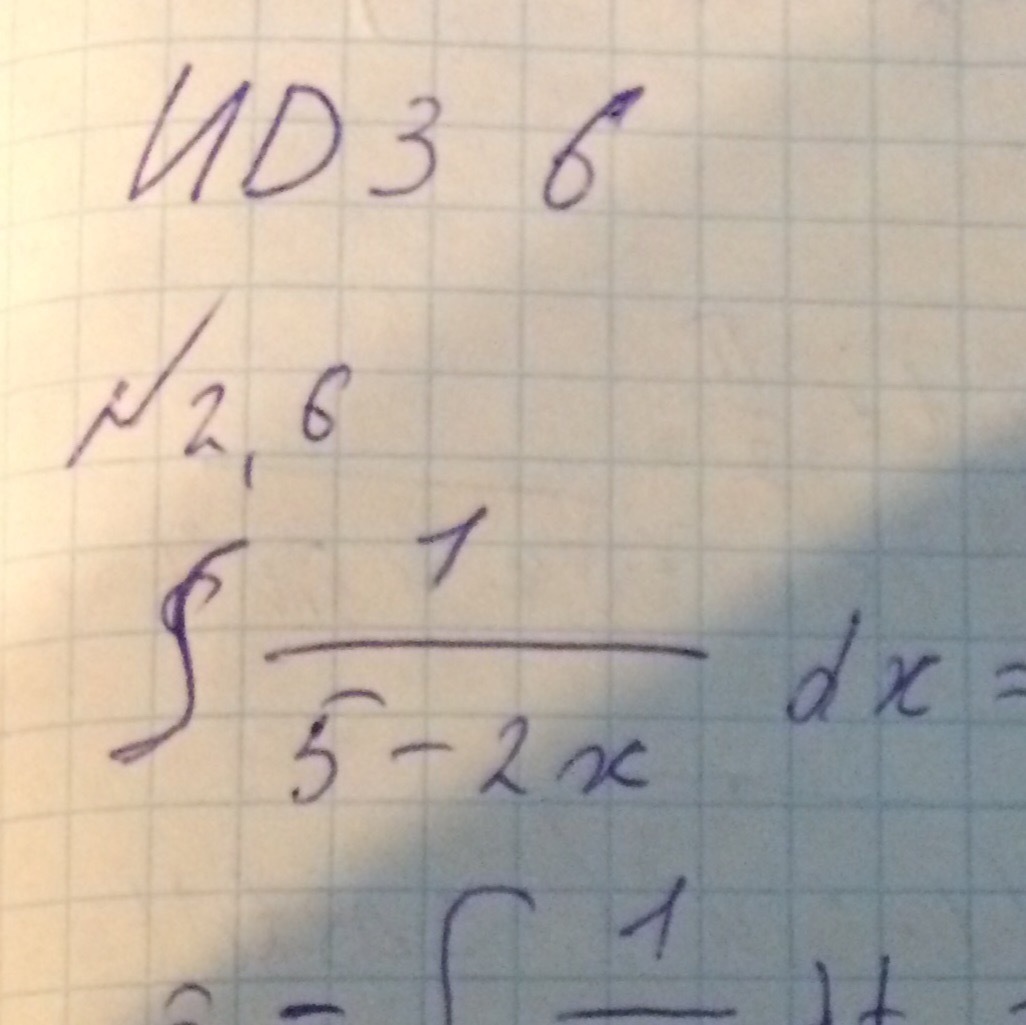 ИDЗ 6
№2,6
∫ 1/(5-2x) dx =
- ∫ 1